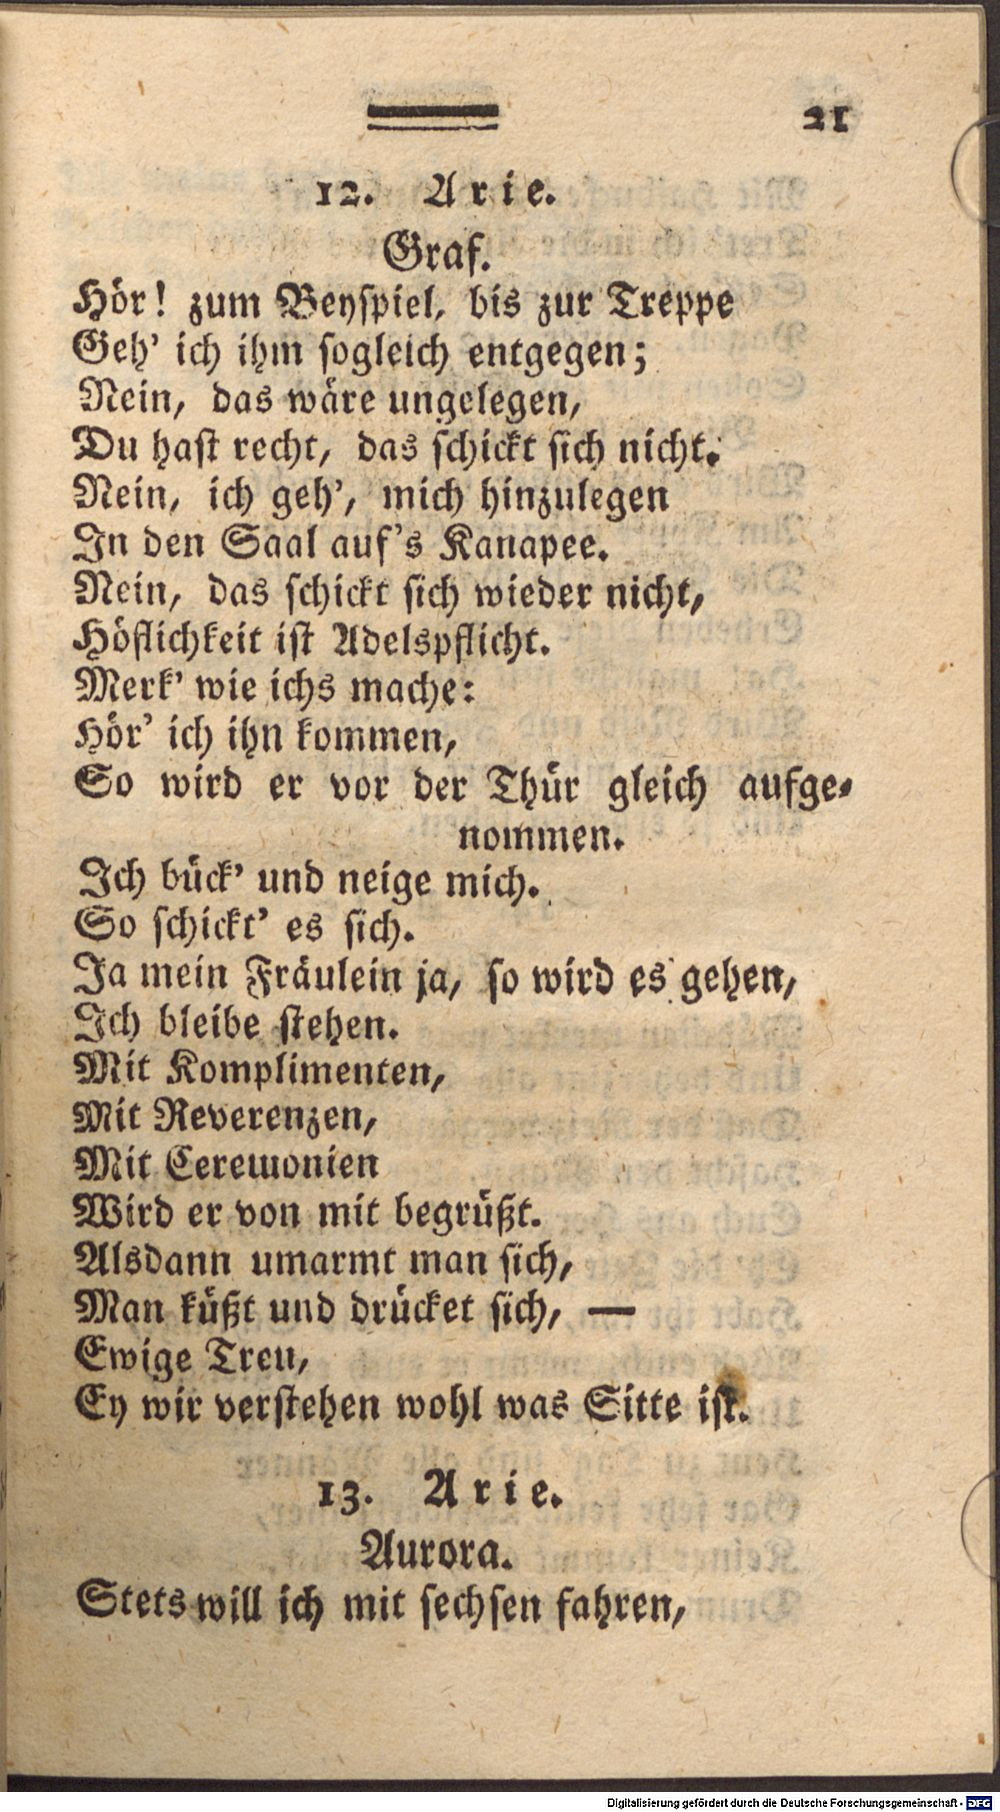 21
12. Arie.
Graf.
Hör! zum Beyspiel, bis zur Treppe
Geh' ich ihm sogleich entgegen;
Nein, das wäre ungelegen,
Du hast recht, das schickt sich nicht.
Nein, ich geh', mich hinzulegen
In den Saal auf's Kanapee.
Nein, das schickt sich wieder nicht,
Höflichkeit ist Adelspflicht.
Merk' wie ichs mache:
Hör' ich ihn kommen,
So wird er vor der Thür gleich aufge-
nommen.
Ich bück' und neige mich.
So schickt' es sich.
Ja mein Fräulein ja, so wird es gehen,
Ich bleibe stehen.
Mit Komplimenten,
Mit Reverenzen,
Mit Ceremonien
Wird er von mit begrüßt.
Alsdann umarmt man sich,
Man küßt und drücket sich, —
Ewige Treu,
Ey wir verstehen wohl was Sitte ist.
13. Arie.
Aurora.
Stets will ich mit sechsen fahren,
Digitalisierung gefördert durch die Deutsche Forschungsgemeinschaft - DFG